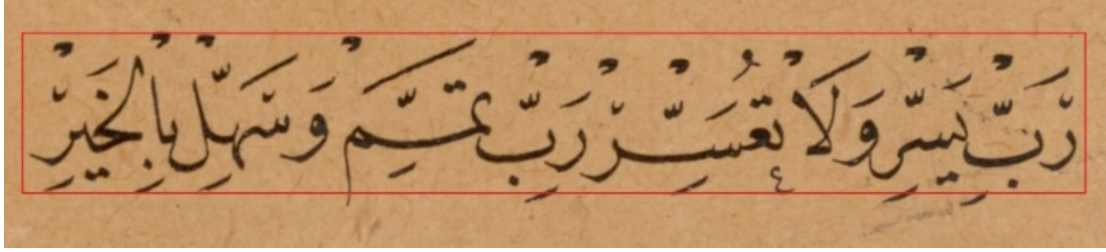 رَبِّ يَسِّرْ وَلَا تُعَسِّرْ رَبِّ تَمِّمْ وَسَهِّلْ بِالْخَيْرِ